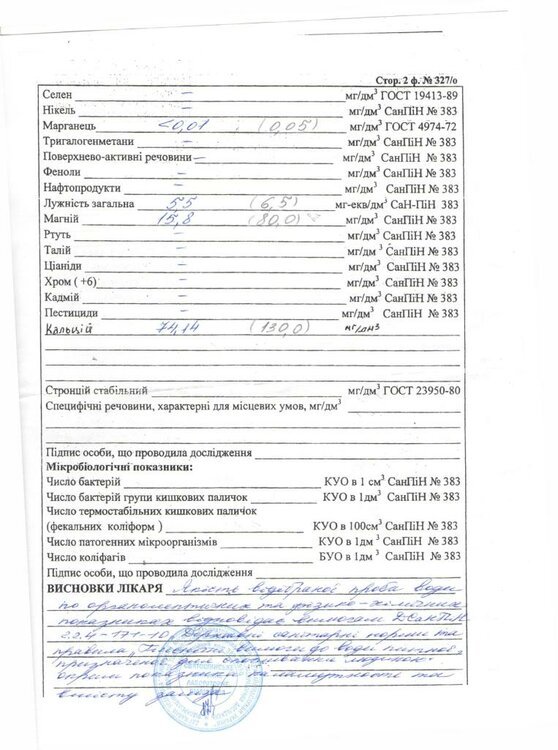 Стор. 2 ф. № 327/о
Селен – мг/дм³ ГОСТ 19413-89
Нікель – мг/дм³ СанПіН № 383
Марганець <0,01 (0,05) мг/дм³ ГОСТ 4974-72
Тригалогенметани – мг/дм³ СанПіН № 383
Поверхнево-активні речовини – мг/дм³ СанПіН № 383
Феноли – мг/дм³ СанПіН № 383
Нафтопродукти – мг/дм³ СанПіН № 383
Лужність загальна 5,5 (6,5) мг-екв/дм³ СаН-ПіН 383
Магній 15,8 (80,0) мг/дм³ СанПіН № 383
Ртуть – мг/дм³ СанПіН № 383
Талій – мг/дм³ СанПіН № 383
Ціаніди – мг/дм³ СанПіН № 383
Хром ( +6) – мг/дм³ СанПіН № 383
Кадмій – мг/дм³ СанПіН № 383
Пестициди – мг/дм³ СанПіН № 383
Кальцій 74,14 (130,0) мг/дм³
Стронцій стабільний мг/дм³ ГОСТ 23950-80
Специфічні речовини, характерні для місцевих умов, мг/дм³
Підпис особи, що проводила дослідження
Мікробіологічні показники:
Число бактерій КУО в 1 см³ СанПіН № 383
Число бактерій групи кишкових паличок КУО в 1дм³ СанПіН № 383
Число термостабільних кишкових паличок
(фекальних коліформ ) КУО в 100см³ СанПіН № 383
Число патогенних мікроорганізмів КУО в 1дм³ СанПіН № 383
Число коліфагів БУО в 1дм³ СанПіН № 383
Підпис особи, що проводила дослідження
ВИСНОВКИ ЛІКАРЯ Якість відібраної проба води
по органолептичних та фізико-хімічних
показниках відповідає вимогам ДСанПіН
2.2.4-171-10 „Державні санітарні норми та
правила „Гігієнічні вимоги до води питної,
призначеної для споживання людиною"
окрім показника каламутності та
вмісту заліза.